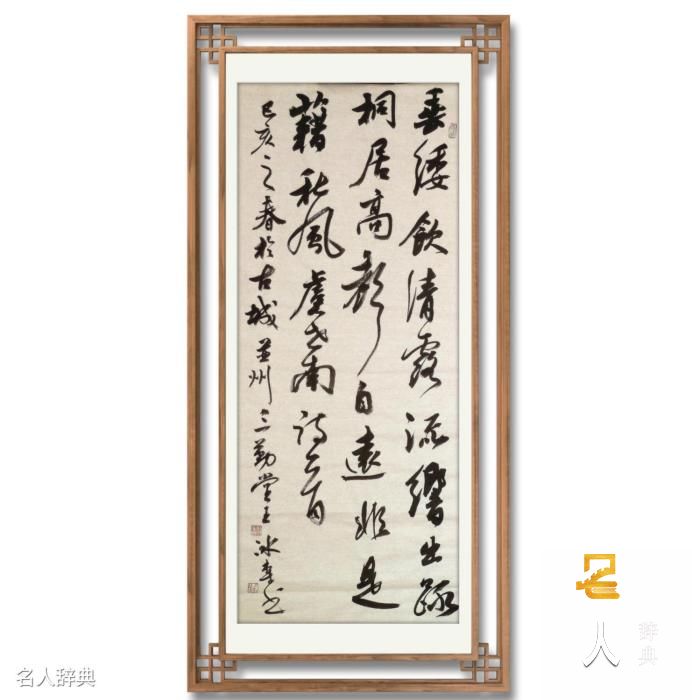 垂緌飲清露流響出疏
桐居高聲自遠非是
藉秋風虞世南詩一首
己亥之春於古城並州三勤堂主冰書
名人辞典
名人辞典